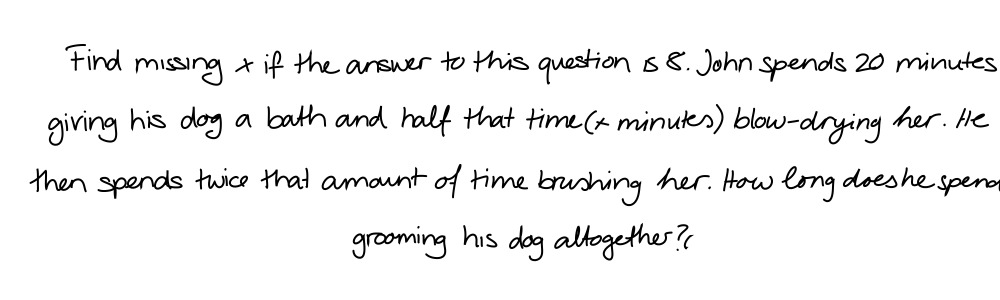 Find missing x if the answer to this question is 8. John spends 20 minutes
giving his dog a bath and half that time (x minutes) blow-drying her. He
then spends twice that amount of time brushing her. How long does he spend
grooming his dog altogether?